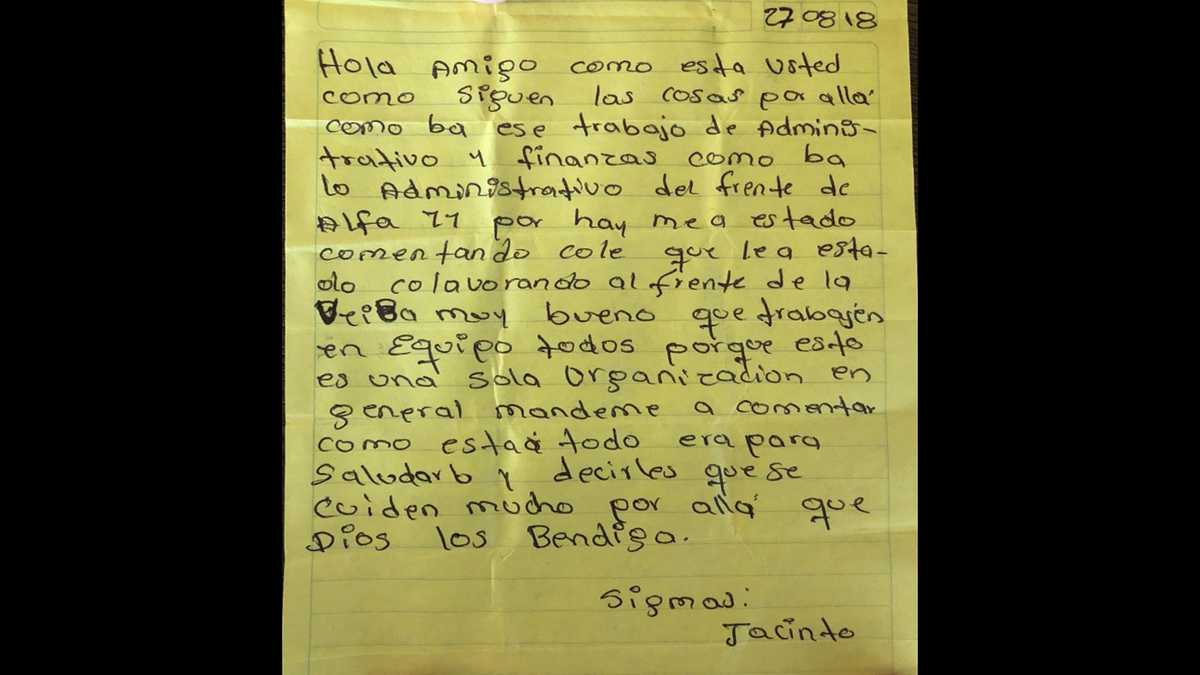 27 08 18
Hola Amigo como esta Usted
como siguen las cosas por allá
como ba ese trabajo de Adminis-
trativo y finanzas como ba
lo Administrativo del frente de
Alfa 11 por hay me a estado
comentando cole que le a esta-
do colavorando al frente de la
muy bueno que trabajen
en Equipo todos porque esto
es una sola Organizacion en
general mandeme a comentar
como está todo era para
Saludarlo y decirles que se
cuiden mucho por allá que
Dios los Bendiga.
Sigmas:
Jacinto